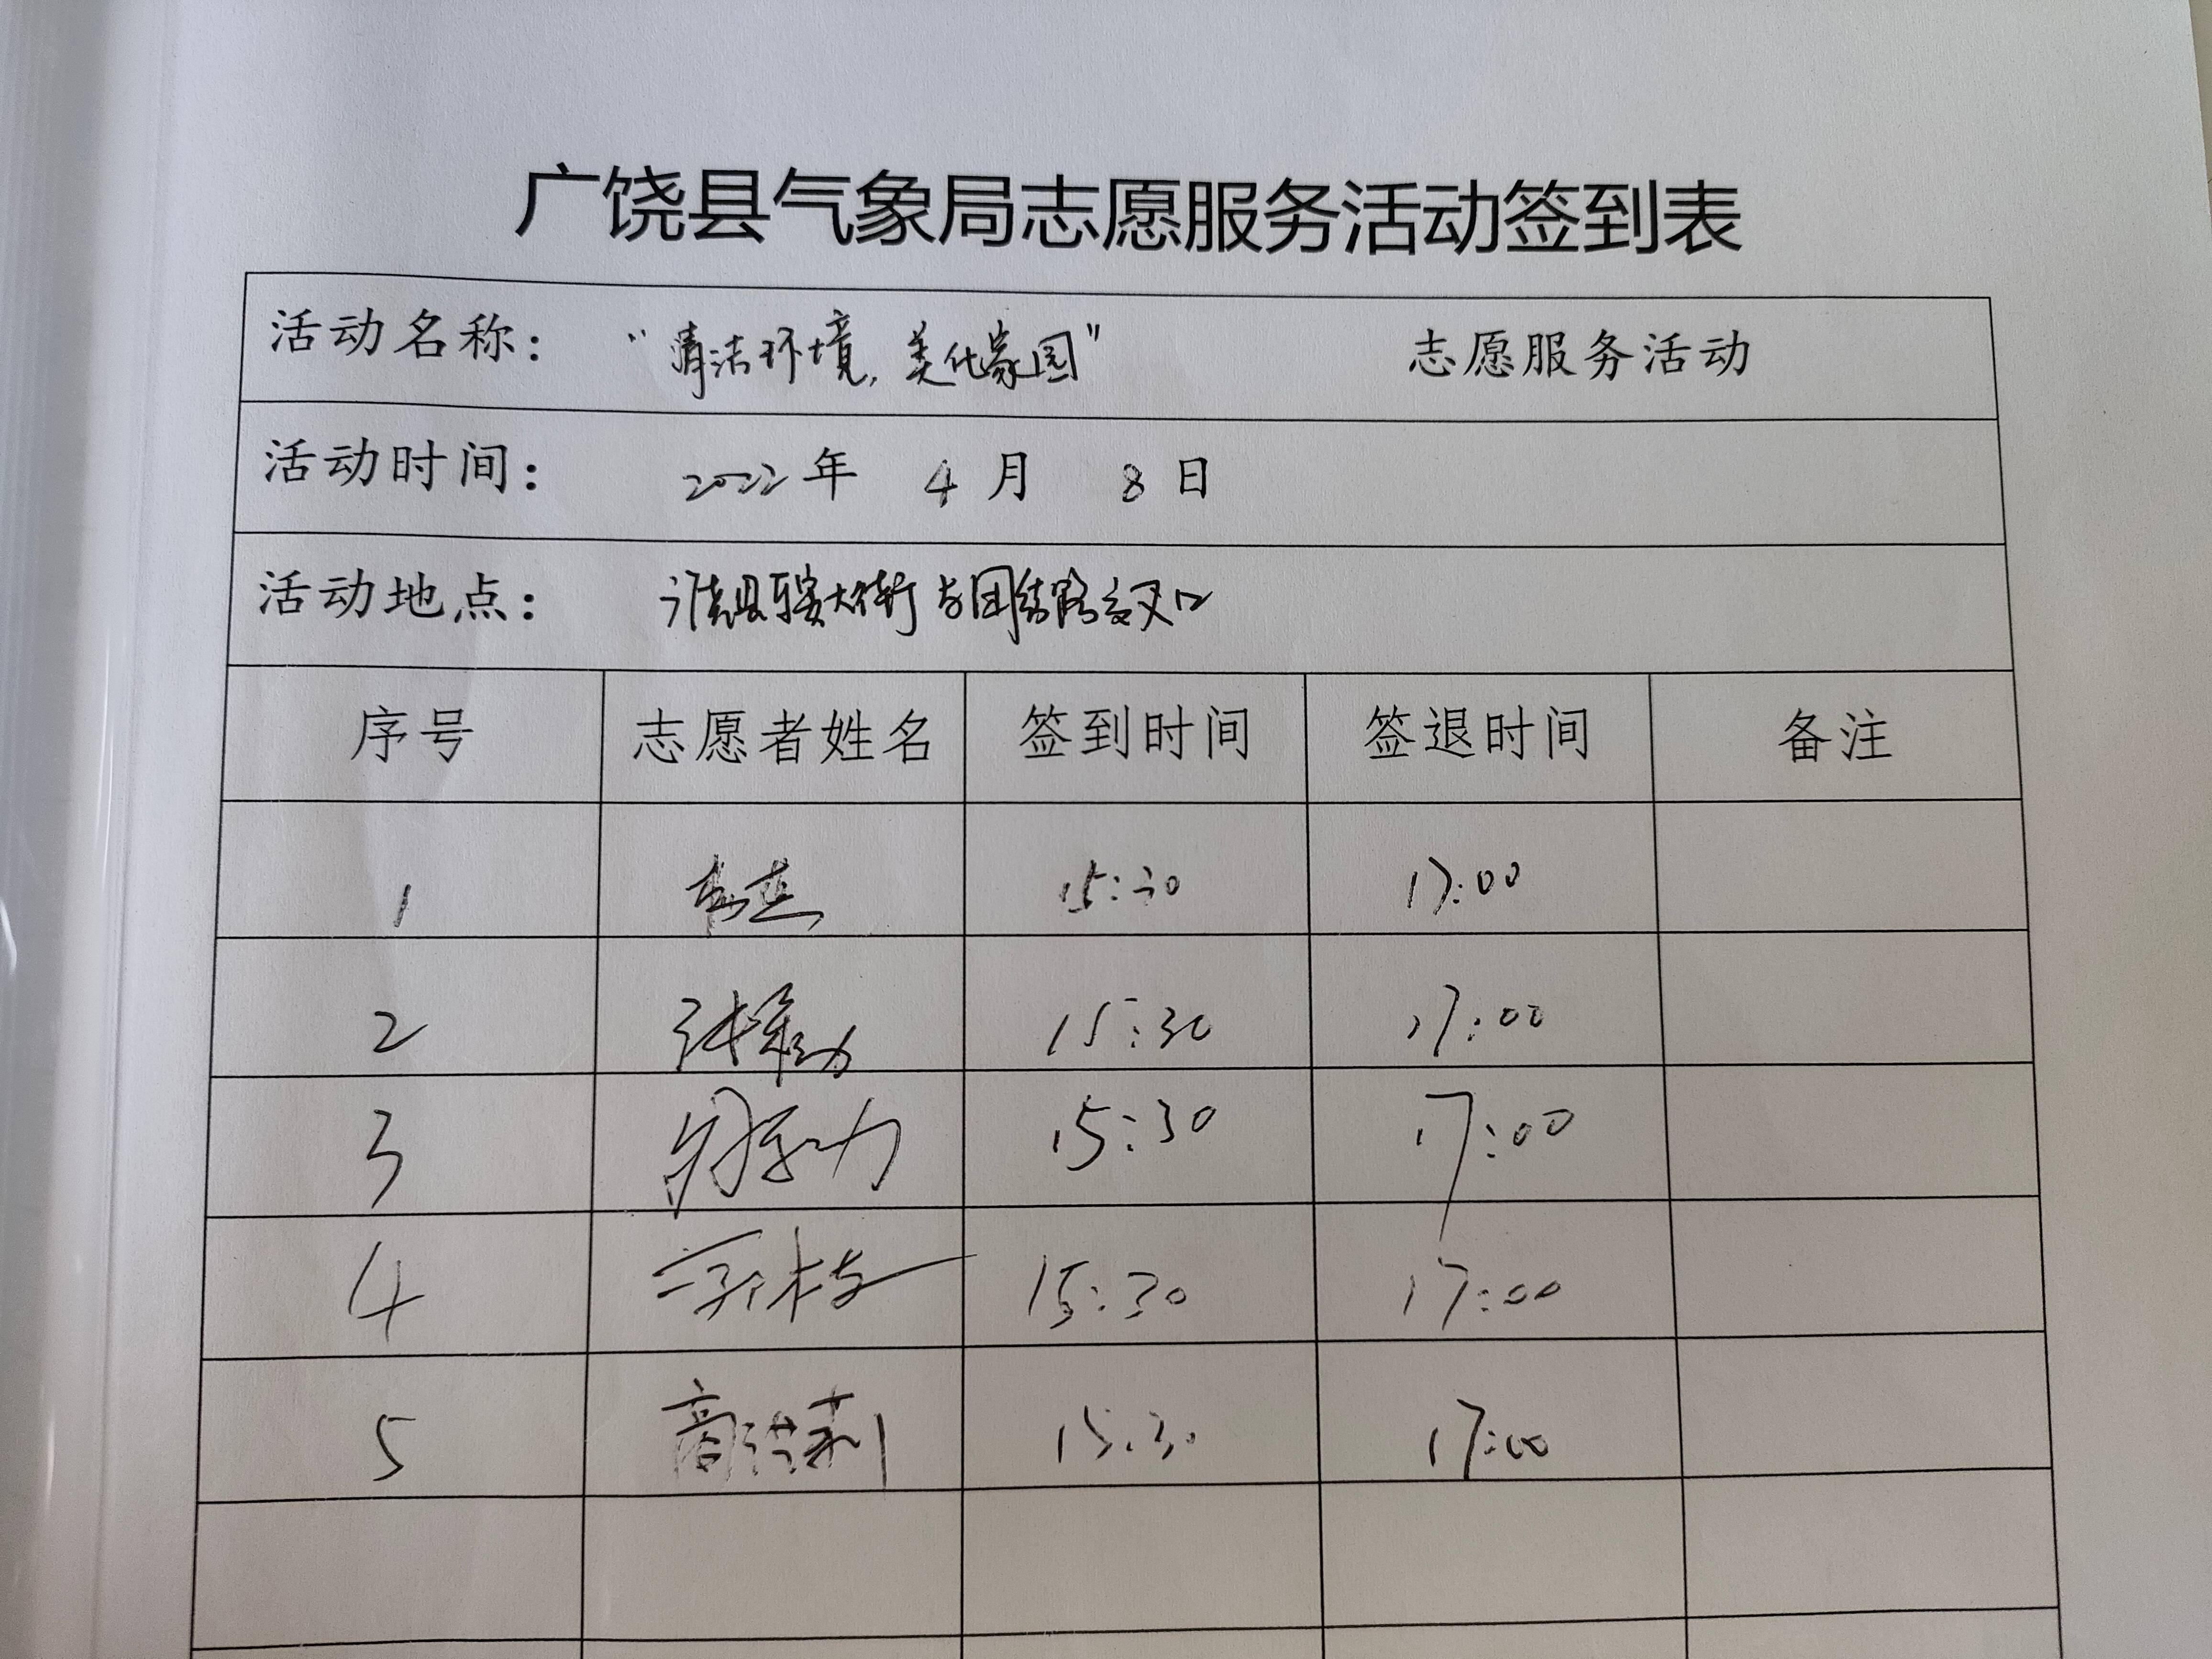 广饶县气象局志愿服务活动签到表
活动名称: “清洁环境,美化家园” 志愿服务活动
活动时间: 2022年 4月 8日
活动地点: 广饶县乐安大街与团结路交叉口
序号 志愿者姓名 签到时间 签退时间 备注
1 15:30 17:00
2 15:30 17:00
3 15:30 17:00
4 15:30 17:00
5 商洪莉 15:30 17:00